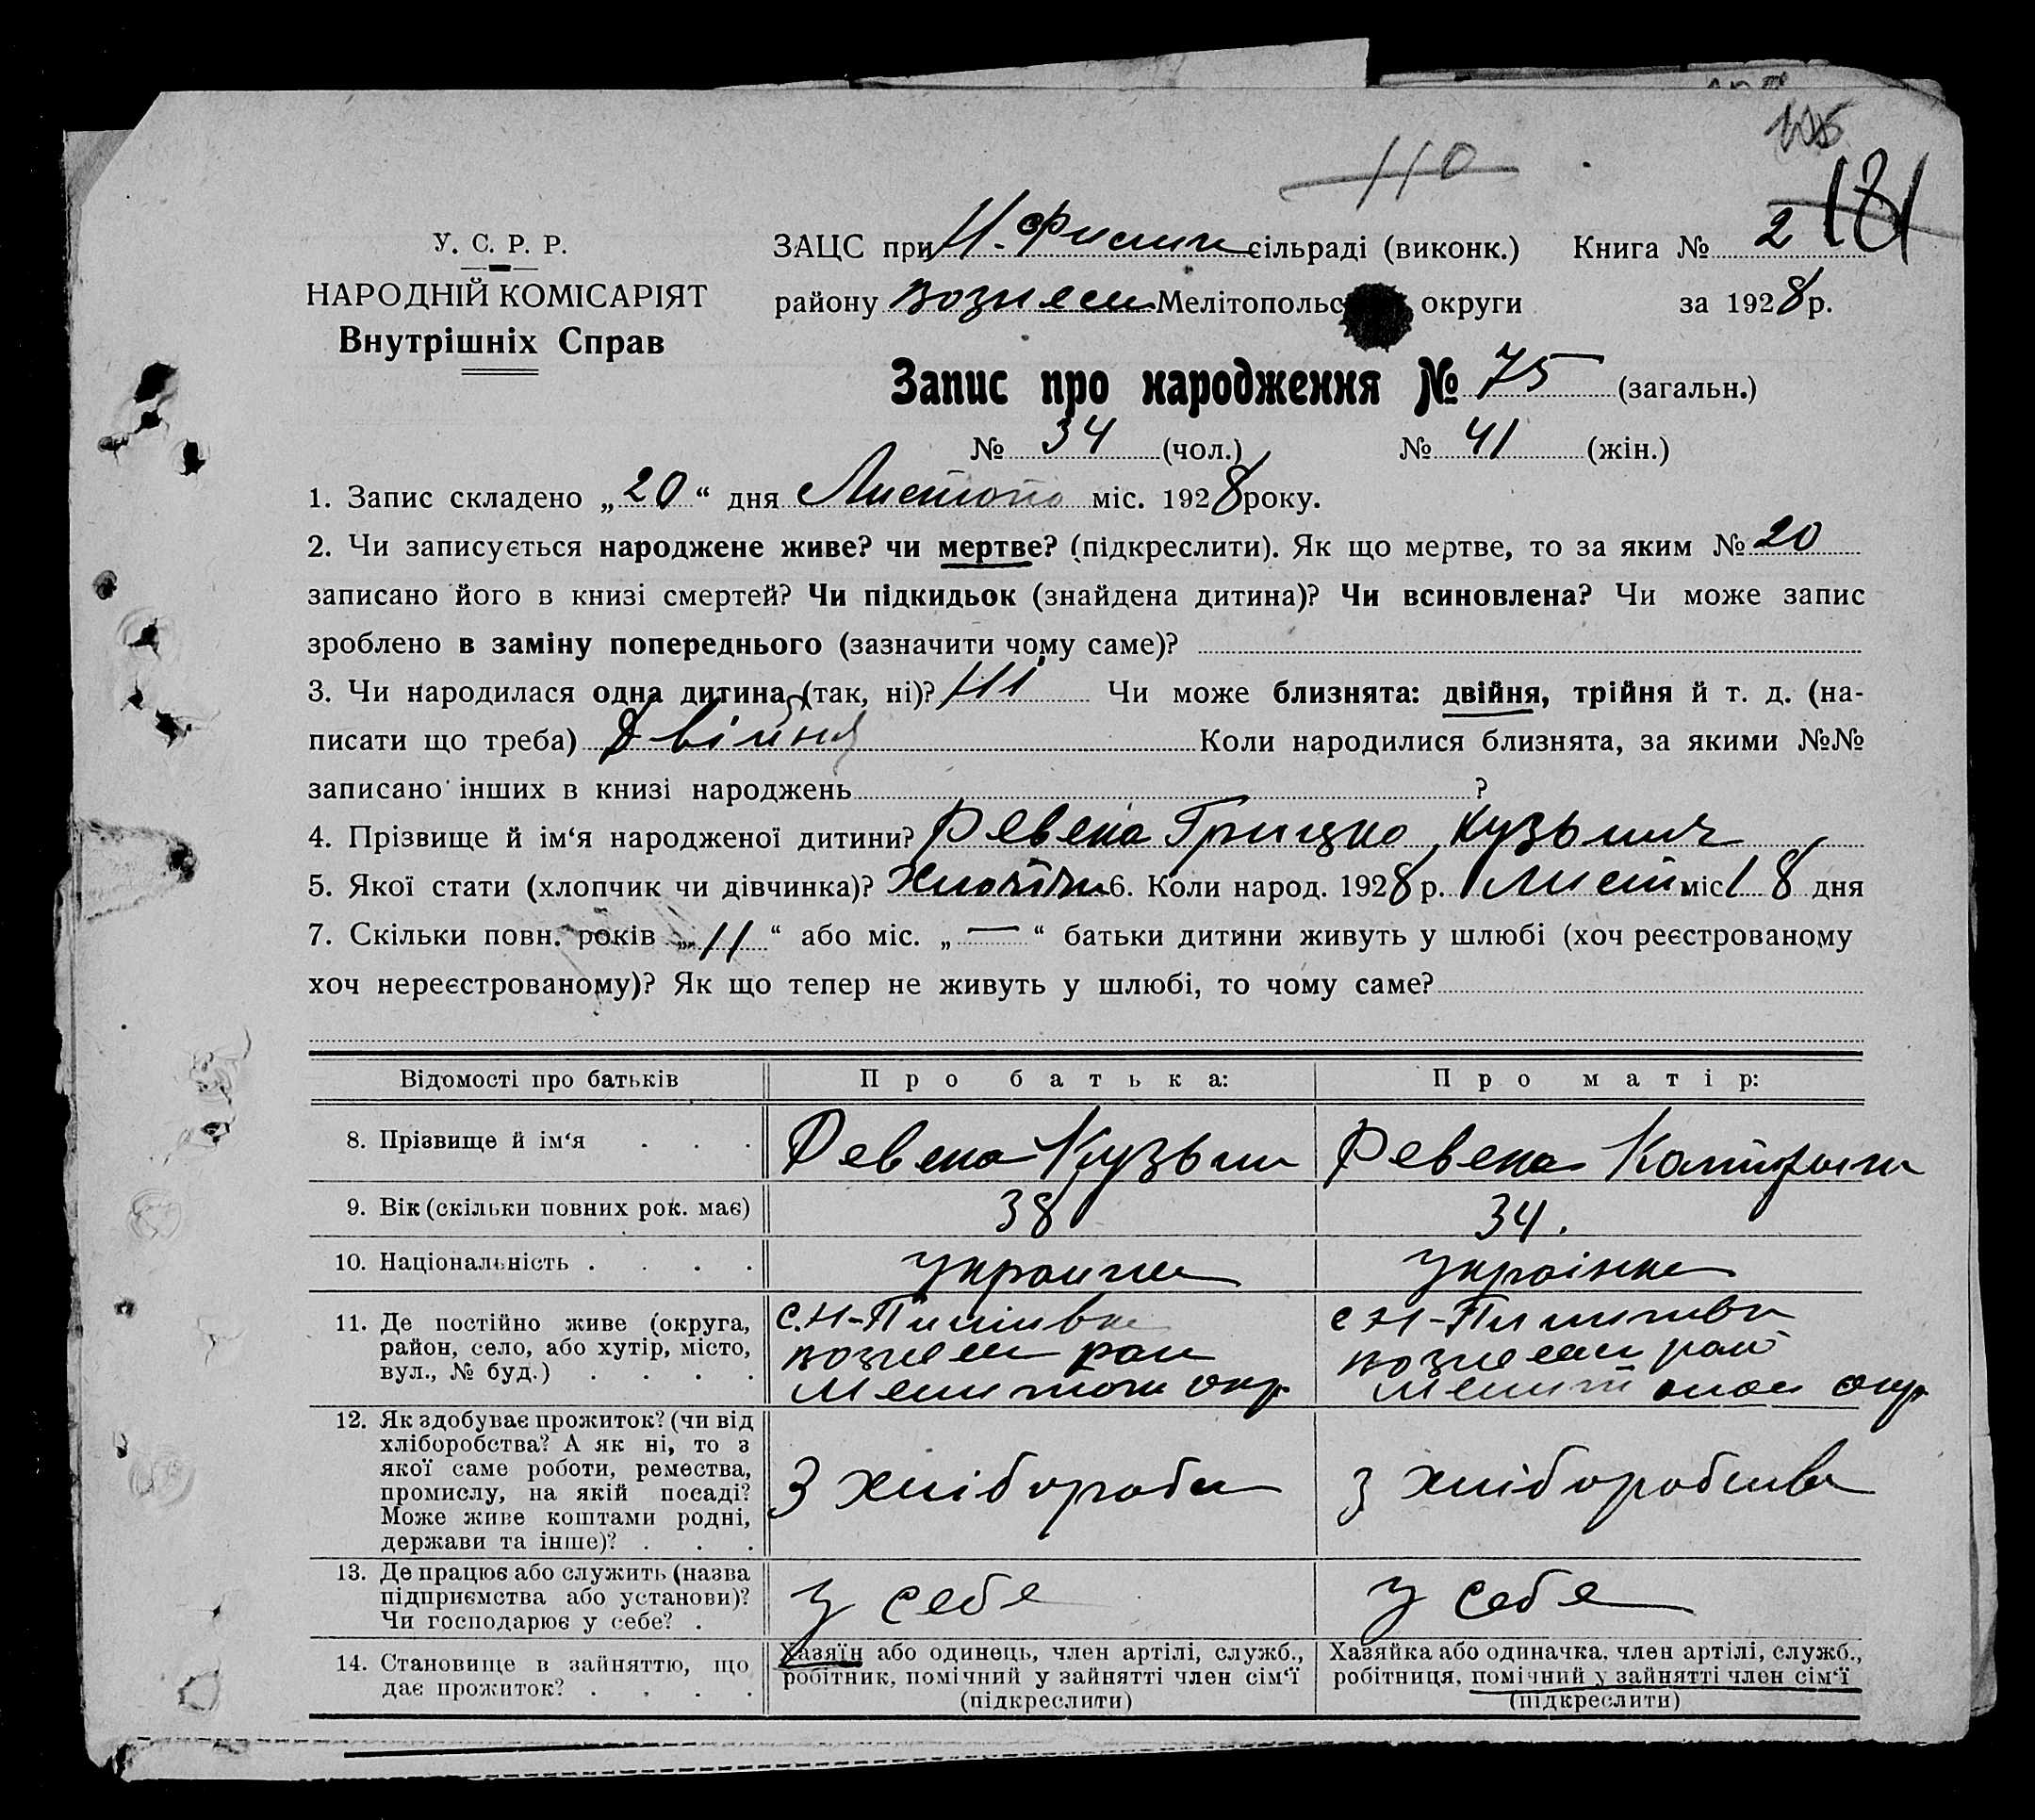 110
181
У. С. Р. Р.
НАРОДНІЙ КОМІСАРІЯТ
Внутрішніх Справ
ЗАЦС при Н. Филип сільраді (виконк.) Книга № 2
району Вознесен Мелітопольс округи за 1928 р.
Запис про народження № 75 (загальн.)
№ 34 (чол.) № 41 (жін.)
1. Запис складено „20“ дня Листопа міс. 1928 року.
2. Чи записується народжене живе? чи мертве? (підкреслити). Як що мертве, то за яким № 20
записано його в книзі смертей? Чи підкидьок (знайдена дитина)? Чи всиновлена? Чи може запис
зроблено в заміну попереднього (зазначити чому саме)?
3. Чи народилася одна дитина (так, ні)? Ні Чи може близнята: двійня, трійня й т. д. (на-
писати що треба) Двійня Коли народилися близнята, за якими №№
записано інших в книзі народжень ?
4. Прізвище й ім‘я народженої дитини? Ревека Грицко Кузьмич
5. Якої стати (хлопчик чи дівчинка)? Хлопчик 6. Коли народ. 1928 р. Лист міс 18 дня
7. Скільки повн. років „11“ або міс. „—“ батьки дитини живуть у шлюбі (хоч реєстрованому
хоч нереєстрованому)? Як що тепер не живуть у шлюбі, то чому саме?
Відомості про батьків Про батька: Про матір:
8. Прізвище й ім‘я . . . Ревека Кузьма Ревека Катирина
9. Вік (скільки повних рок. має) 38 34.
10. Національність . . . . украинец українка
11. Де постійно живе (округа, с. Н-Пилипівка с Н-Пилипивки
район, село, або хутір, місто, вознесен рай вознесен рай
вул., № буд.) . . . . Мелитоп окр. Мелитопол окр
12. Як здобуває прожиток? (чи від
хліборобства? А як ні, то з
якої саме роботи, ремества,
промислу, на якій посаді? З хлібороба з хліборобства
Може живе коштами родні,
держави та інше)? . . .
13. Де працює або служить (назва
підприємства або установи)? у себе у себе
Чи господарює у себе? .
14. Становище в зайняттю, що Хазяїн або одинець, член артілі, служб., Хазяйка або одиначка, член артілі, служб.,
дає прожиток? . . . . робітник, помічний у зайнятті член сім‘ї робітниця, помічний у зайнятті член сім‘ї
(підкреслити) (підкреслити)